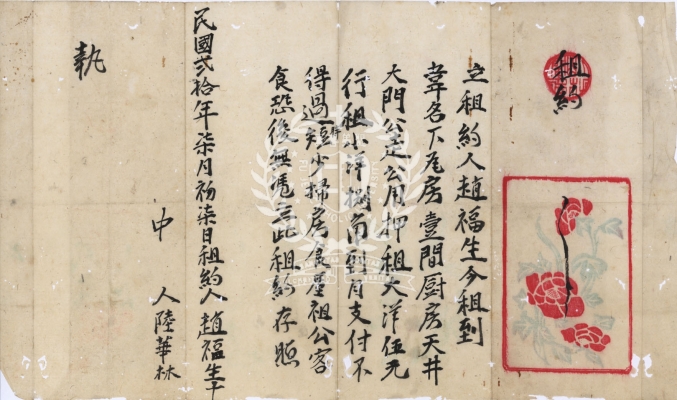 租約
立租約人趙福生今租到
韋名下尾房壹間厨房天井
大門公走公用押租大洋伍元
行租小洋捌角到月支付不
得過短少掃房良歷租公客
食恐後無憑立此租約存照
民國弍拾年柒月初柒日租約人趙福生
中
人陸華林
執